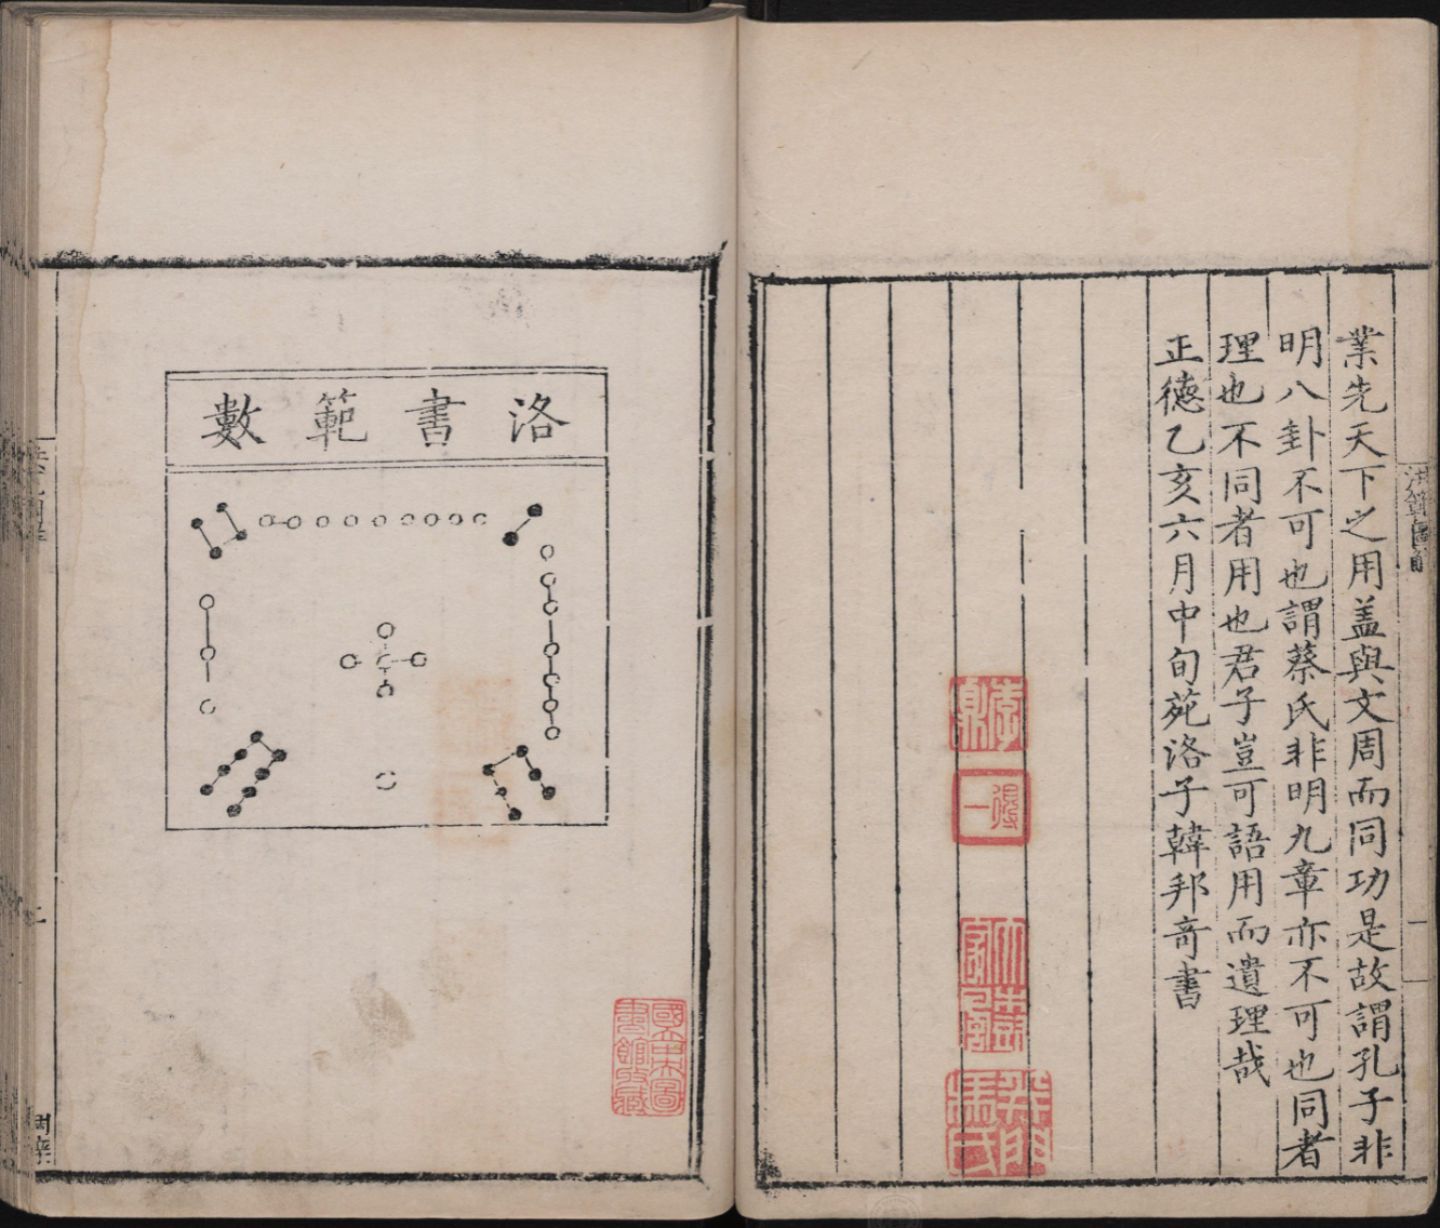 業先天下之用盖與文周而同功是故謂孔子非
明八卦不可也謂蔡氏非明九章亦不可也同者
理也不同者用也君子豈可語用而遺理哉
正德乙亥六月中旬苑洛子韓邦竒書
一
洛書範數
國立中央圖書館收藏
二